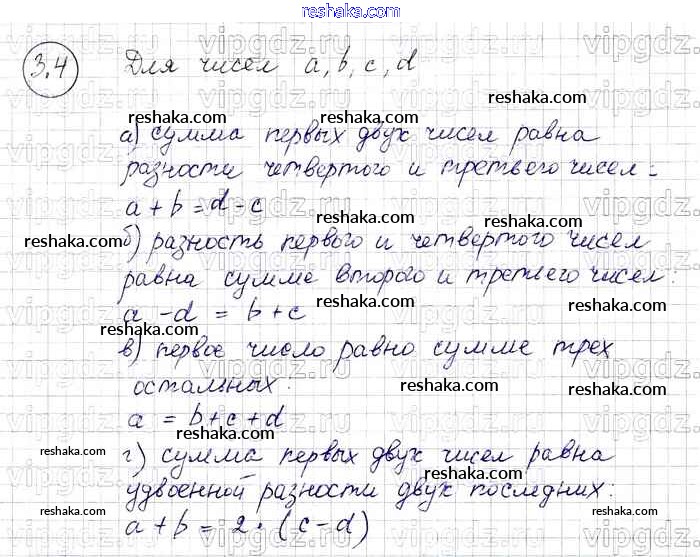 reshaka.com
3.4 Для чисел a, b, c, d
reshaka.com
reshaka.com
а) сумма первых двух чисел равна
reshaka.com
разности четвертого и третьего чисел:
a + b = d - c
reshaka.com
reshaka.com
reshaka.com
б) разность первого и четвертого чисел
равна сумме второго и третьего чисел:
a - d = b + c
reshaka.com
reshaka.com
в) первое число равно сумме трех
reshaka.com
остальных:
reshaka.com
reshaka.com
a = b + c + d
reshaka.com
reshaka.com
г) сумма первых двух чисел равна
reshaka.com
удвоенной разности двух последних:
a + b = 2 · (c - d)
reshaka.com
reshaka.com
vipgdz.ru